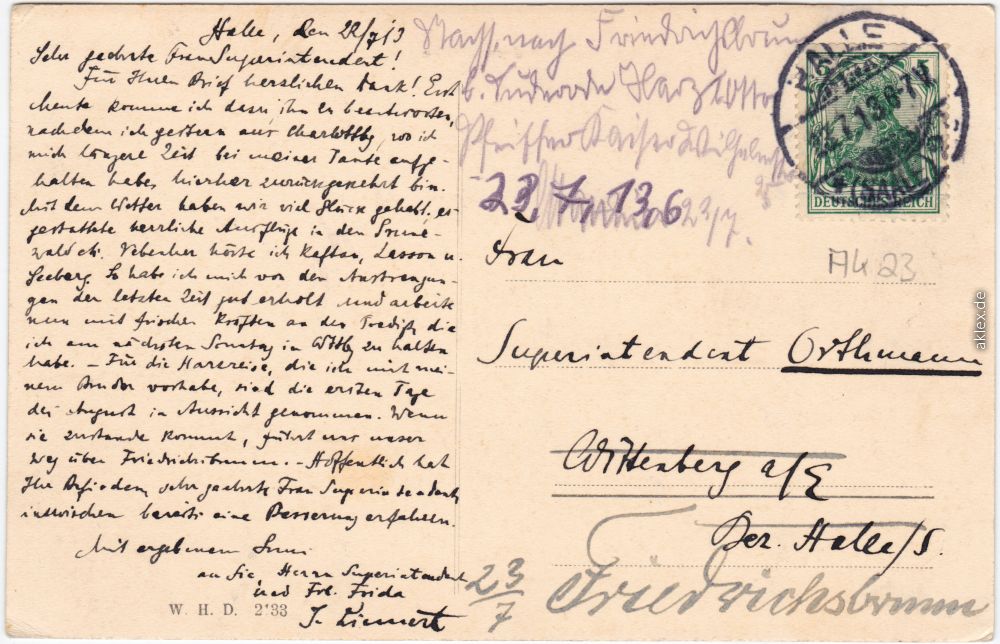 Halle, den 22/7 13
Sehr geehrte Frau Superintendent!
Für Ihren Brief herzlichen Dank! Erst
heute komme ich dazu, ihn zu beantworten,
nachdem ich gestern aus Charlottbg, wo ich
mich längere Zeit bei meiner Tante aufge-
halten habe, hierher zurückgekehrt bin.
Mit dem Wetter haben wir viel Glück gehabt, es
gestattete herrliche Ausflüge in den Grune-
wald etc. Nebenher hörte ich Kaftan, Lasson u.
Seeberg. So habe ich mich von den Anstrengun-
gen der letzten Zeit gut erholt und arbeite
nun mit frischen Kräften an der Predigt, die
ich am nächsten Sonntag in Wttbg zu halten
habe. – Für die Harzreise, die ich mit mei-
nem Bruder vorhabe, sind die ersten Tage
des August in Aussicht genommen. Wenn
sie zustande kommt, führt uns unser
Weg über Friedrichsbrunn. – Hoffentlich hat
Ihr Befinden, sehr geehrte Frau Superintendent,
inzwischen bereits eine Besserung erfahren.
Mit ergebenem Gruss
an Sie, Herrn Superintendent
und Frl. Frida
W. H. D. 2133
Nachs. nach Friedrichsbrunn
Harz
Pfeiffer Kaiser Wilhelmstr
23.7.13 6
23/7.
HALLE
22.7.13.6-7N
(SAALE)
DEUTSCHES REICH
AK 23
Frau
Superintendent Orthmann
Wittenberg a/E
Bez. Halle/S.
23/7
Friedrichsbrunn
aklex.de